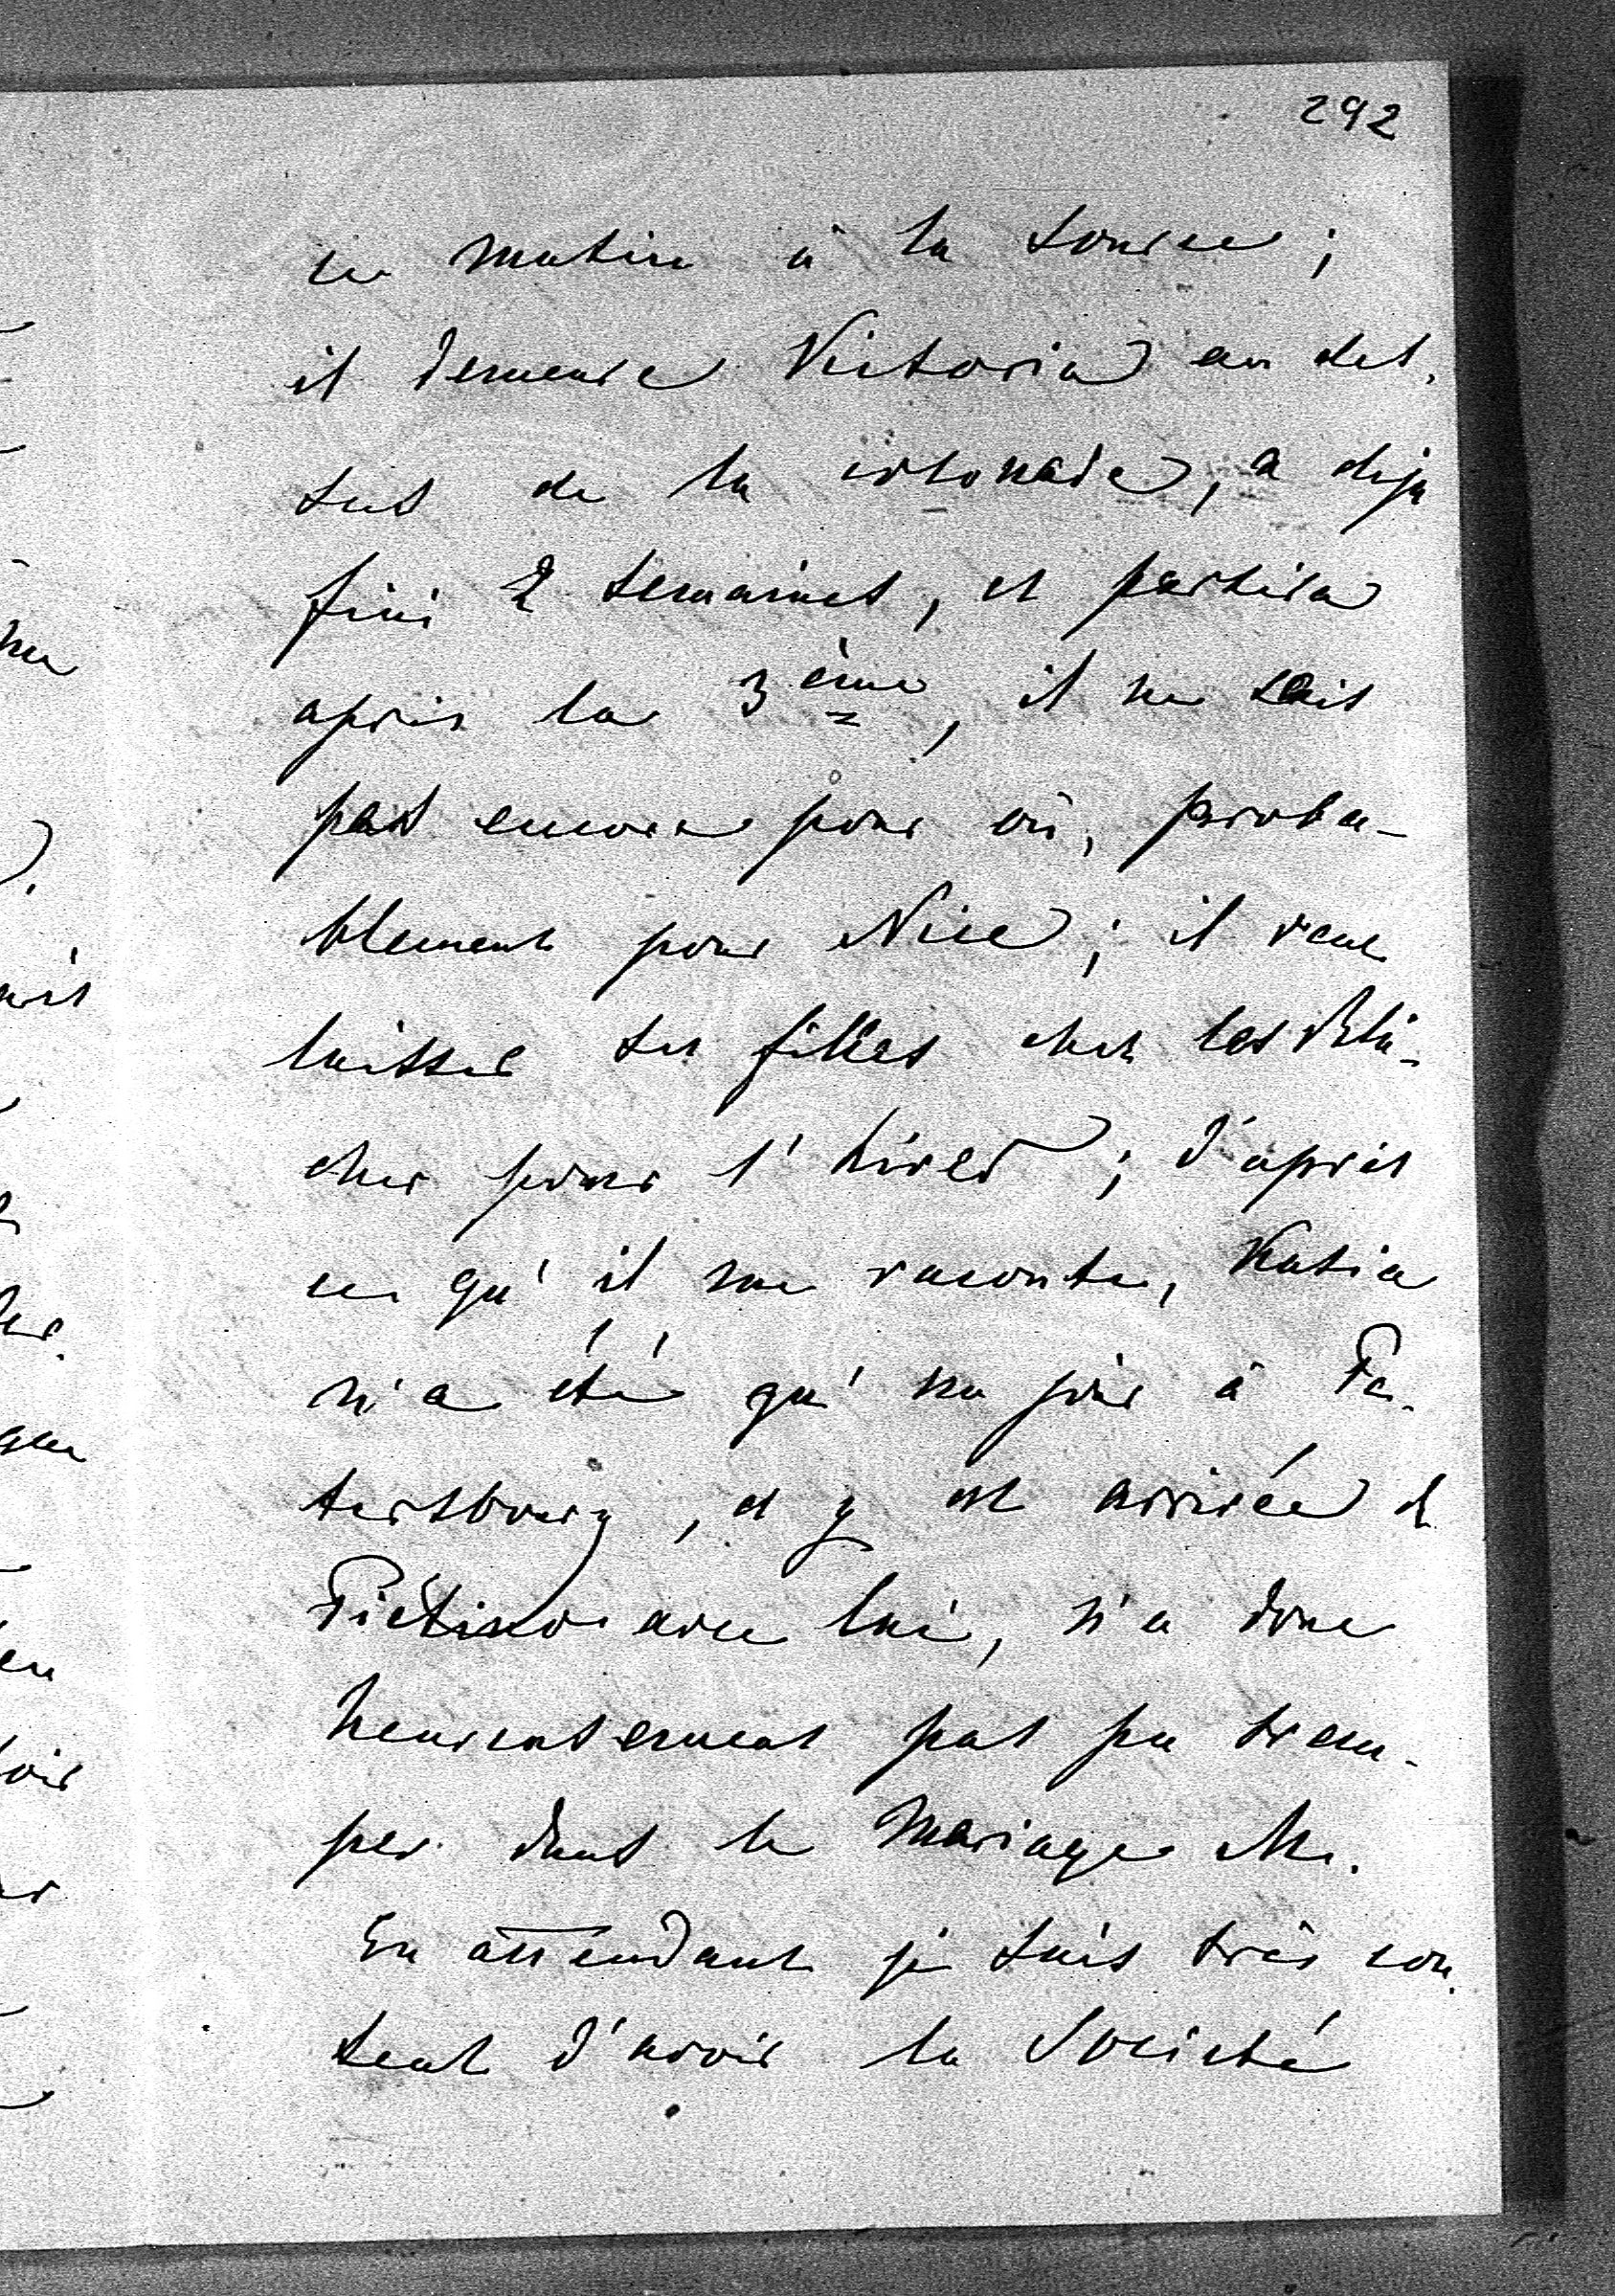 292
ce matin à la source ;
il demeure Victoria au des-
sus de la colonade, a deja
fini 2 semaines, et partira
après la 3ème, il ne sais
pas encore pour où, proba-
blement pour Nice ; il veut
laisser ses filles chez les Blü-
cher pour l'hiver ; d'après
ce qu'il me raconte, Katia
n'a été qu'un jour à Pe-
tersbourg, et y est arrivée de
avec lui, n'a donc
heureusement pas pu trem-
per dans le Mariage M.
En attendant je suis très con-
tent d'avoir la Société